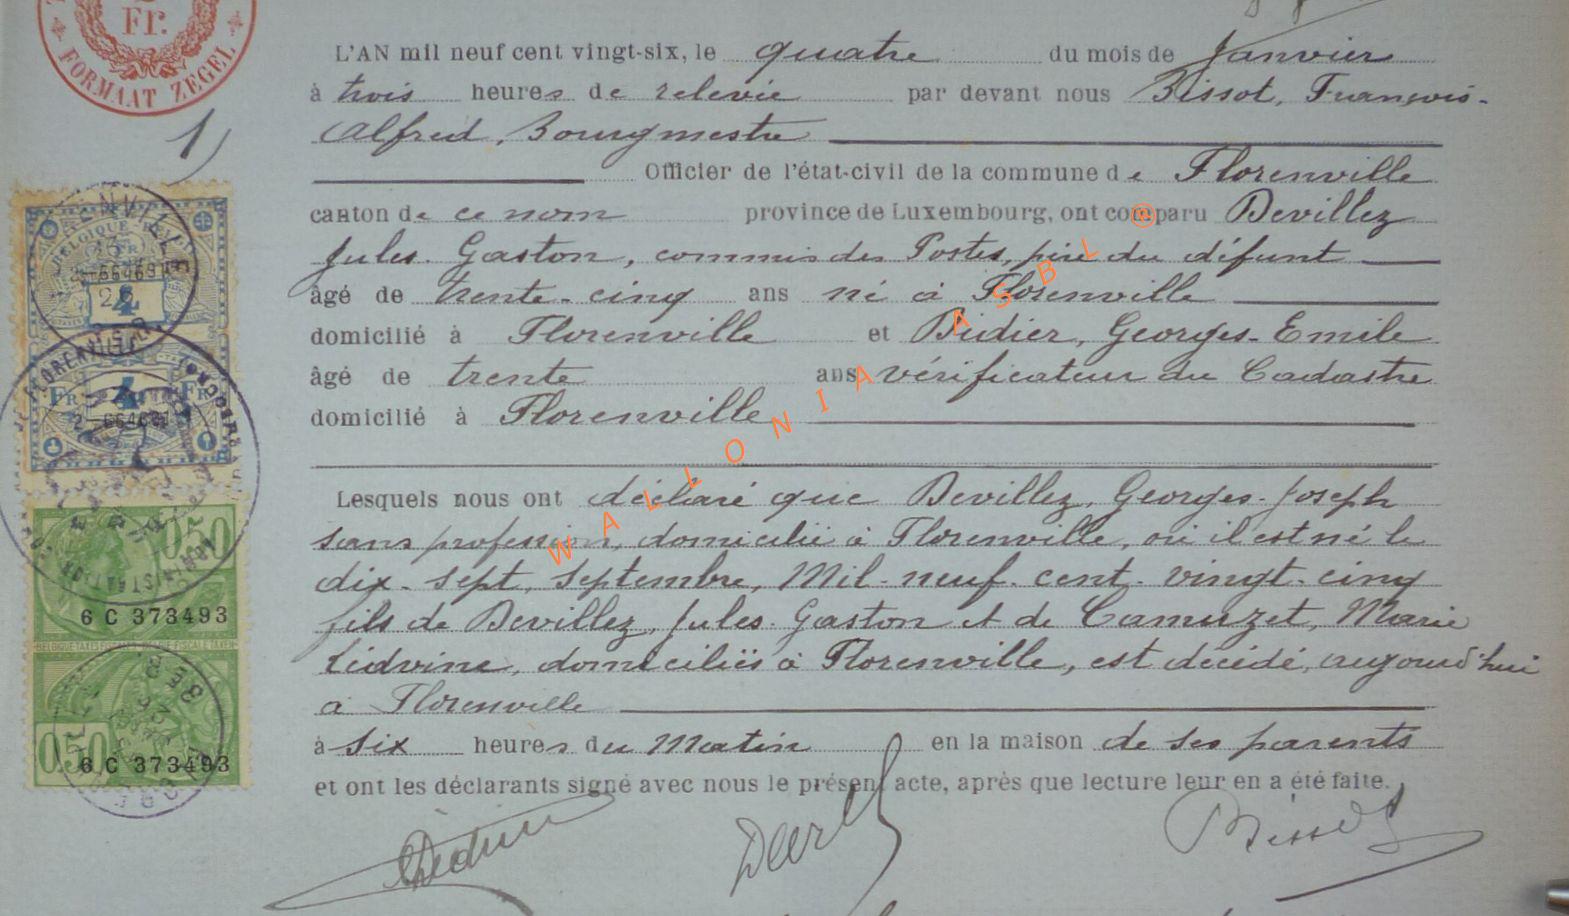 Fr.
FORMAAT ZEGEL
1)
L'AN mil neuf cent vingt-six, le quatre du mois de Janvier
à trois heures de relevée par devant nous Bissot, François-
Alfred, Bourgmestre
Officier de l'état-civil de la commune de Florenville
canton de ce nom province de Luxembourg, ont comparu Devillez
Jules-Gaston, commis des Postes, père du défunt
âgé de trente-cinq ans né à Florenville
domicilié à Florenville et Didier, Georges-Emile
âgé de trente ans vérificateur du Cadastre
domicilié à Florenville
Lesquels nous ont déclaré que Devillez, Georges-Joseph
sans profession, domicilié à Florenville, où il est né le
dix-sept, septembre, Mil-neuf-cent-vingt-cinq
fils de Devillez, Jules-Gaston et de Camuzet, Marie
Lidvine, domiciliés à Florenville, est décédé, aujourd'hui
à Florenville
à six heures du Matin en la maison de ses parents
et ont les déclarants signé avec nous le présent acte, après que lecture leur en a été faite.
Didier
Bissot
WALLONIA ASBL ®
BELGIQUE
4
Fr 4 Fr
0,50
6 C 373493
0,50
6 C 373493